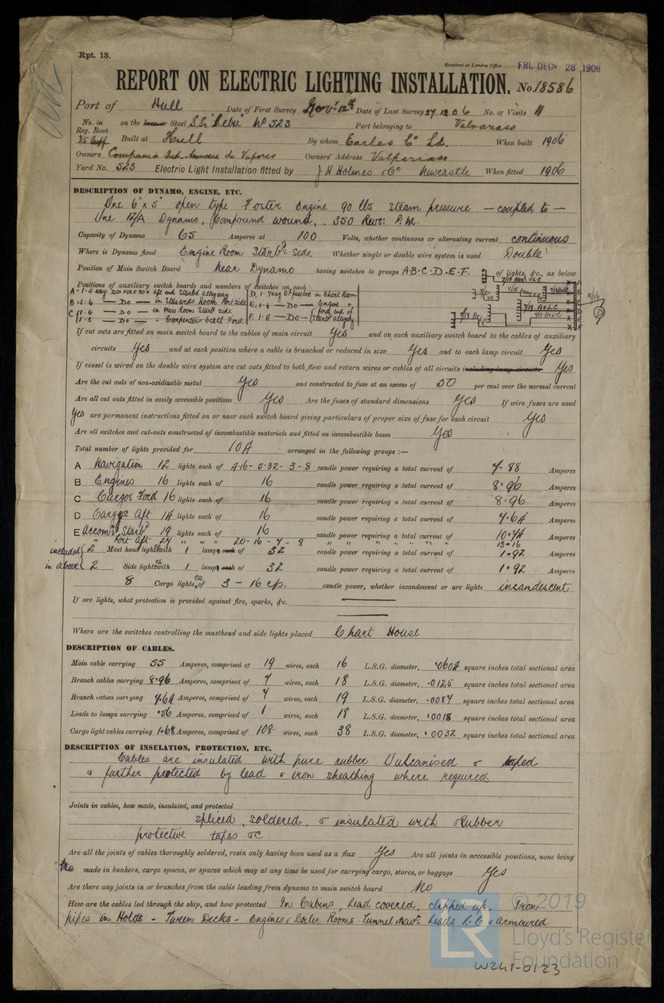 Rpt. 13.
Received at London Office FRI. DEC 28 1906
REPORT ON ELECTRIC LIGHTING INSTALLATION. No 18586
Port of Hull Date of First Survey Nov 12th Date of Last Survey 27 12 06 No. of Visits 11
No. in Reg. Book 35 Supp on the Iron or Steel S.S. No 523 Port belonging to Valparaiso
Built at Hull By whom Earles Co Ld. When built 1906
Owners Compania Sud Americana de Vapores Owners' Address Valparaiso
Yard No. 523 Electric Light Installation fitted by J H Holmes & Co Newcastle When fitted 1906
DESCRIPTION OF DYNAMO, ENGINE, ETC.
One 6" x 5" open type Foster Engine 90 lbs steam pressure — coupled to —
One Dynamo, Compound wound, 350 Revs: P.M.
Capacity of Dynamo 65 Amperes at 100 Volts, whether continuous or alternating current continuous
Where is Dynamo fixed Engine Room Starbd side Whether single or double wire system is used Double
Position of Main Switch Board Near Dynamo having switches to groups A·B·C·D·E·F. of lights, &c., as below
Positions of auxiliary switch boards and numbers of switches on each
If cut outs are fitted on main switch board to the cables of main circuit Yes and on each auxiliary switch board to the cables of auxiliary
circuits Yes and at each position where a cable is branched or reduced in size Yes and to each lamp circuit Yes
If vessel is wired on the double wire system are cut outs fitted to both flow and return wires or cables of all circuits including lamp circuits Yes
Are the cut outs of non-oxidizable metal Yes and constructed to fuse at an excess of 50 per cent over the normal current
Are all cut outs fitted in easily accessible positions Yes Are the fuses of standard dimensions Yes If wire fuses are used
Yes are permanent instructions fitted on or near each switch board giving particulars of proper size of fuse for each circuit Yes
Are all switches and cut-outs constructed of incombustible materials and fitted on incombustible bases Yes
Total number of lights provided for 104 arranged in the following groups :—
A Navigation 12 lights each of 4-16 - 5-32 - 3-8 candle power requiring a total current of 7·88 Amperes
B Engines 16 lights each of 16 candle power requiring a total current of 8·96 Amperes
C Cargos Ford 16 lights each of 16 candle power requiring a total current of 8·96 Amperes
D Cargos Aft 14 lights each of 16 candle power requiring a total current of 7·64 Amperes
E Accomn Starbd 19 lights each of 16 candle power requiring a total current of 10·74 Amperes
" Port Aft 27 " " " 20-16-7-8 " " " " " " " 13·16
included in above
2 Mast head lights with 1 lamp each of 32 candle power requiring a total current of 1·92 Amperes
2 Side lights with 1 lamp each of 32 candle power requiring a total current of 1·92 Amperes
8 Cargo lights of 3 - 16 c.p. candle power, whether incandescent or arc lights incandescent
If arc lights, what protection is provided against fire, sparks, &c.
Where are the switches controlling the masthead and side lights placed Chart House
DESCRIPTION OF CABLES.
Main cable carrying 55 Amperes, comprised of 19 wires, each 16 L.S.G. diameter, ·0604 square inches total sectional area
Branch cables carrying 8·96 Amperes, comprised of 7 wires, each 18 L.S.G. diameter, ·0125 square inches total sectional area
Branch cables carrying 7·64 Amperes, comprised of 7 wires, each 19 L.S.G. diameter, ·0087 square inches total sectional area
Leads to lamps carrying ·56 Amperes, comprised of 1 wires, each 18 L.S.G. diameter, ·0018 square inches total sectional area
Cargo light cables carrying 1·68 Amperes, comprised of 108 wires, each 38 L.S.G. diameter, ·0032 square inches total sectional area
DESCRIPTION OF INSULATION, PROTECTION, ETC.
Cables are insulated with pure rubber Vulcanised & taped
& further protected by lead & iron sheathing where required
Joints in cables, how made, insulated, and protected
spliced, soldered, & insulated with Rubber
protective tapes &c
Are all the joints of cables thoroughly soldered, resin only having been used as a flux Yes Are all joints in accessible positions, none being
made in bunkers, cargo spaces, or spaces which may at any time be used for carrying cargo, stores, or baggage Yes
Are there any joints in or branches from the cable leading from dynamo to main switch board No
How are the cables led through the ship, and how protected In Cabins, lead covered, clipped up. Iron
pipes in Holds - Tween Decks - Engine & Boiler Rooms Tunnel & Navn leads L.C. & Armoured
© 2019
LR Lloyd's Register
Foundation
W241-0123